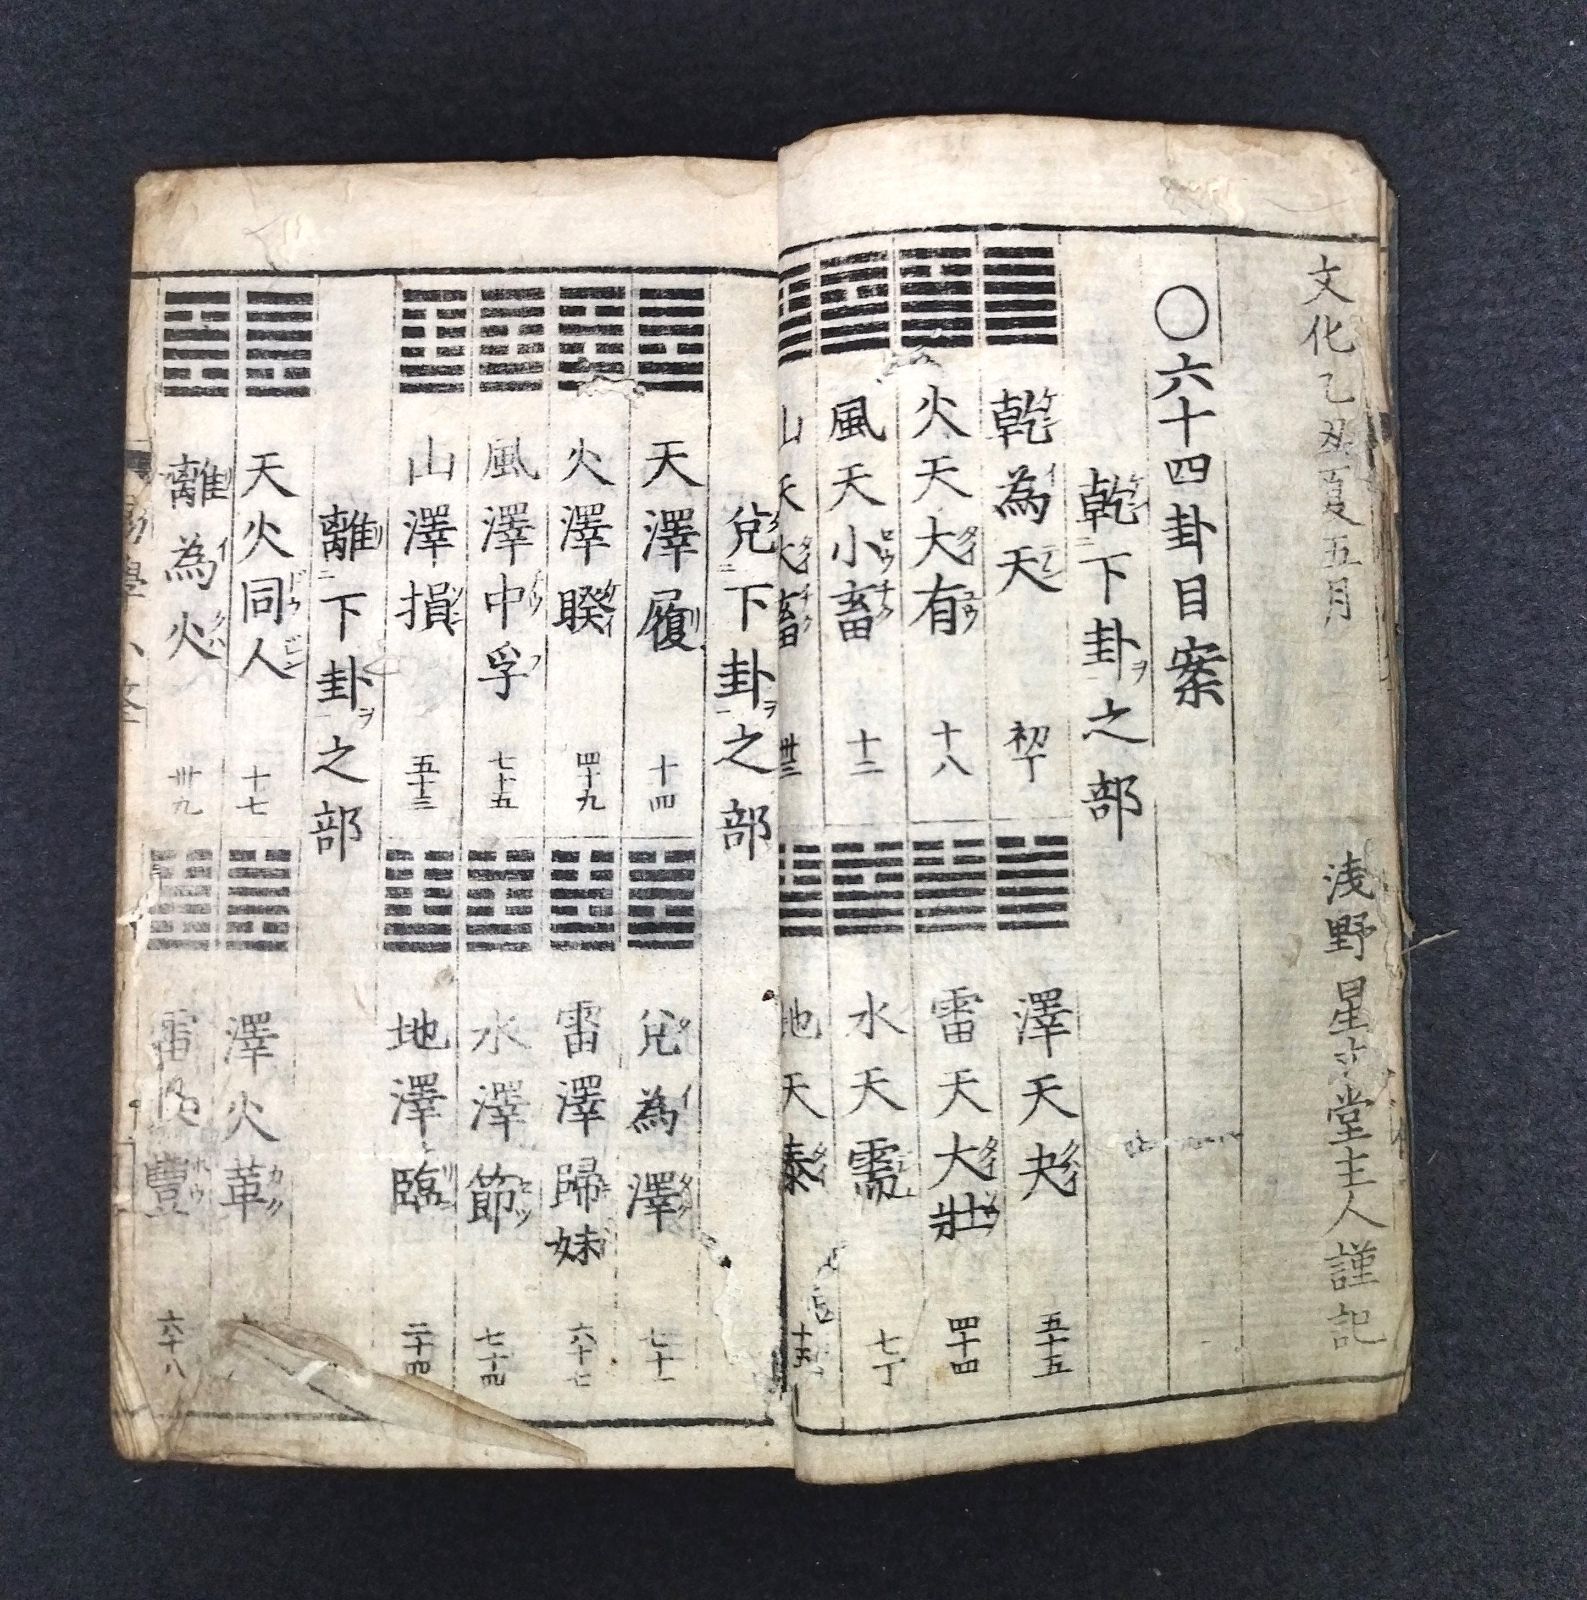 文化乙丑夏五月
浅野星 堂主人謹記
〇六十四卦目案
乾下卦之部
乾為天 初丁
澤天夬 五十五
火天大有 十八
雷天大壯 四十四
風天小畜 十二
水天需 七丁
山天大畜 卅三
地天泰 十五
兌下卦之部
天澤履 十四
兌為澤 七十一
火澤睽 四十九
雷澤歸妹 六十七
風澤中孚 七十五
水澤節 七十四
山澤損 五十三
地澤臨 二十四
離下卦之部
天火同人 十七
澤火革
離為火 卅九
雷火豐 六十八